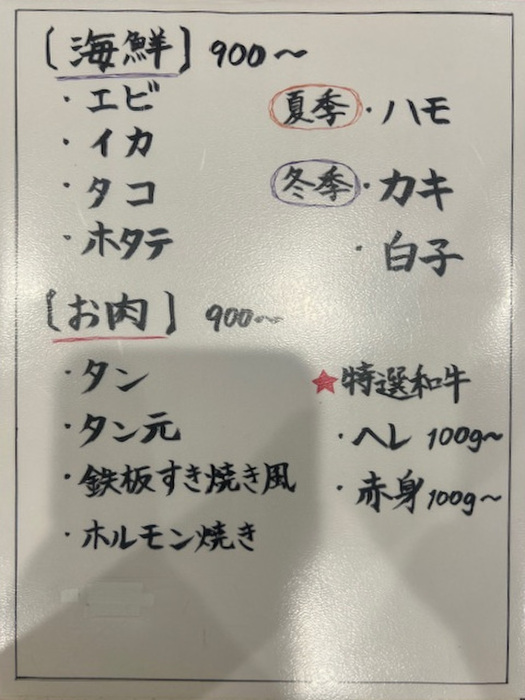 [海鮮] 900〜
・エビ
・イカ
・タコ
・ホタテ
夏季・ハモ
冬季・カキ
・白子
[お肉] 900〜
・タン
・タン元
・鉄板すき焼き風
・ホルモン焼き
★特選和牛
・ヘレ 100g〜
・赤身100g〜